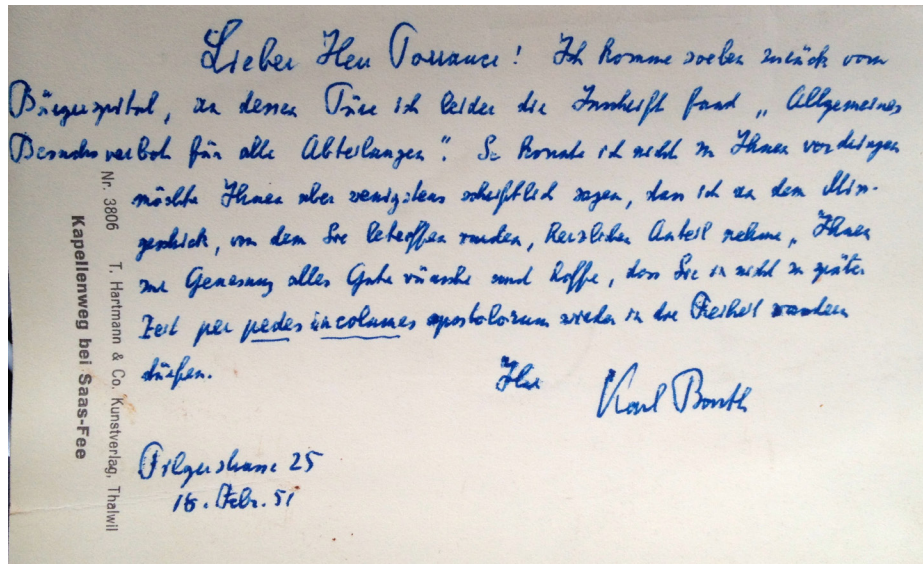 Lieber Herr Torrance! Ich komme soeben zurück vom
Bürgerspital, an dessen Türe ich leider die Inschrift fand „Allgemeines
Besuchsverbot für alle Abteilungen". So konnte ich nicht zu Ihnen vordringen
möchte Ihnen aber wenigstens schriftlich sagen, dass ich an dem Miss-
geschick, von dem Sie betroffen wurden, herzlichen Anteil nehme, Ihnen
zur Genesung alles Gute wünsche und hoffe, dass Sie in nicht zu später
Zeit per pedes incolumes apostolorum wieder in die Freiheit wandern
dürfen.
Ihr Karl Barth
Pilgerstrasse 25
18. Febr. 51
Nr. 3806 T. Hartmann & Co. Kunstverlag, Thalwil
Kapellenweg bei Saas-Fee